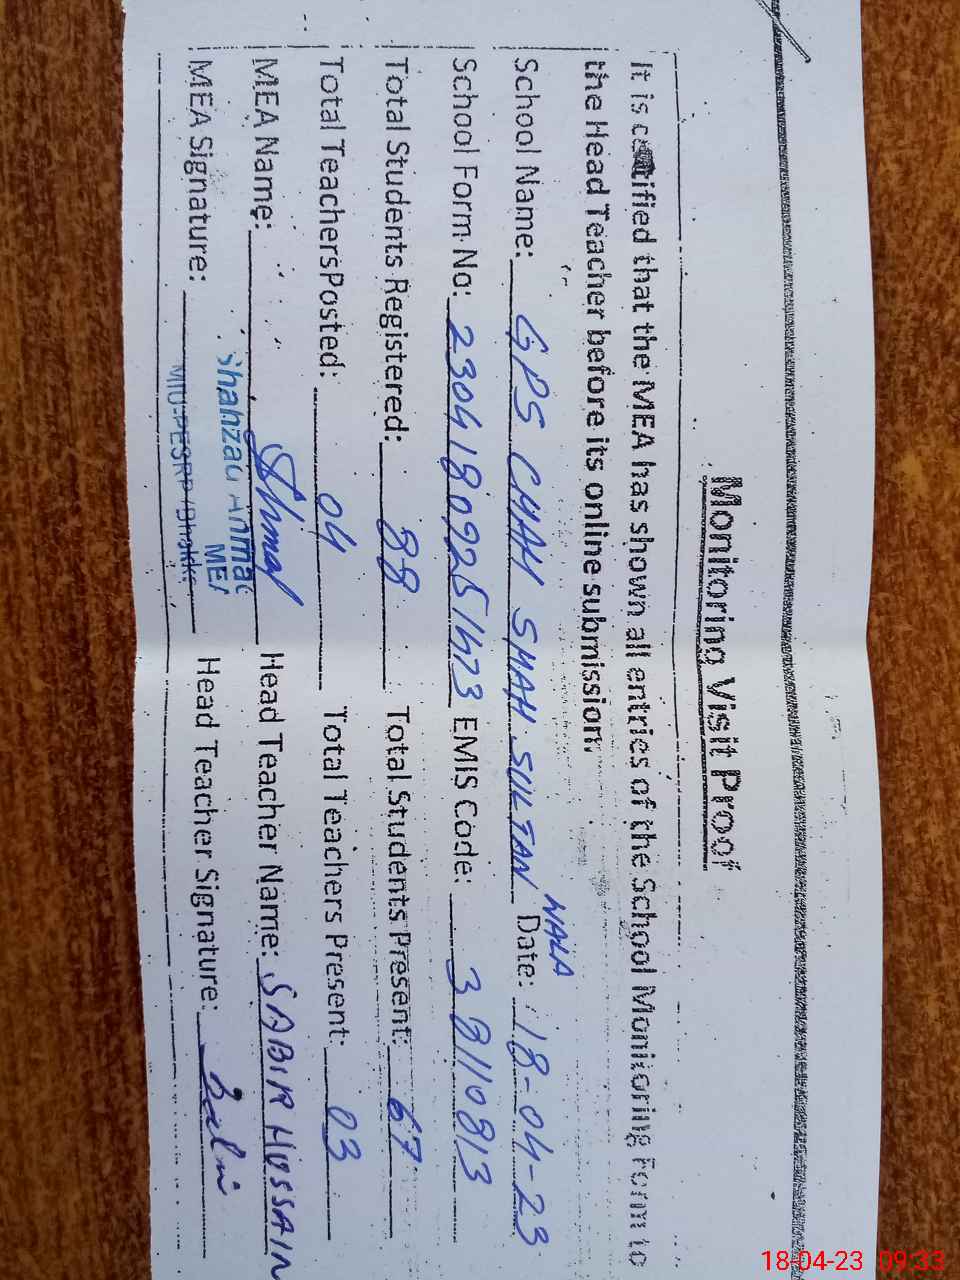 Monitoring Visit Proof
It is certified that the MEA has shown all entries of the School Monitoring Form to
the Head Teacher before its online submission.
School Name: GPS CHAH SHAH SULTAN WALA Date: 18-04-23
School Form No: 23041809251473 EMIS Code: 3 8110813
Total Students Registered: 88 Total Students Present: 67
Total Teachers Posted: 04 Total Teachers Present: 03
MEA Name: Head Teacher Name: SABIR HUSSAIN
MEA Signature: Head Teacher Signature:
MEA
18-04-23 09:33